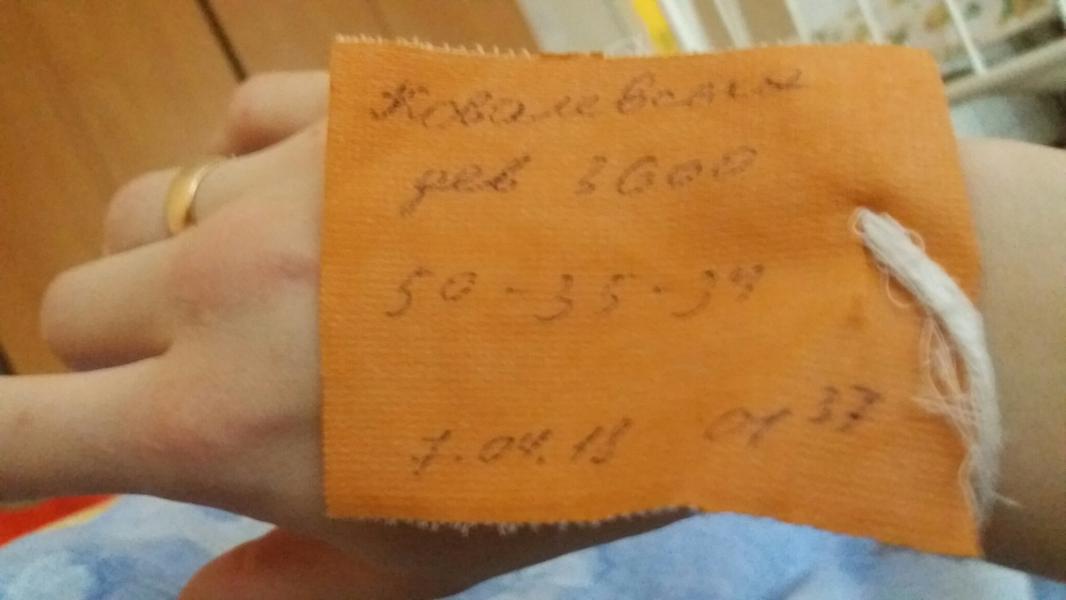 Ковалевская
дев 3600
50-35-34
7.04.18 04 37